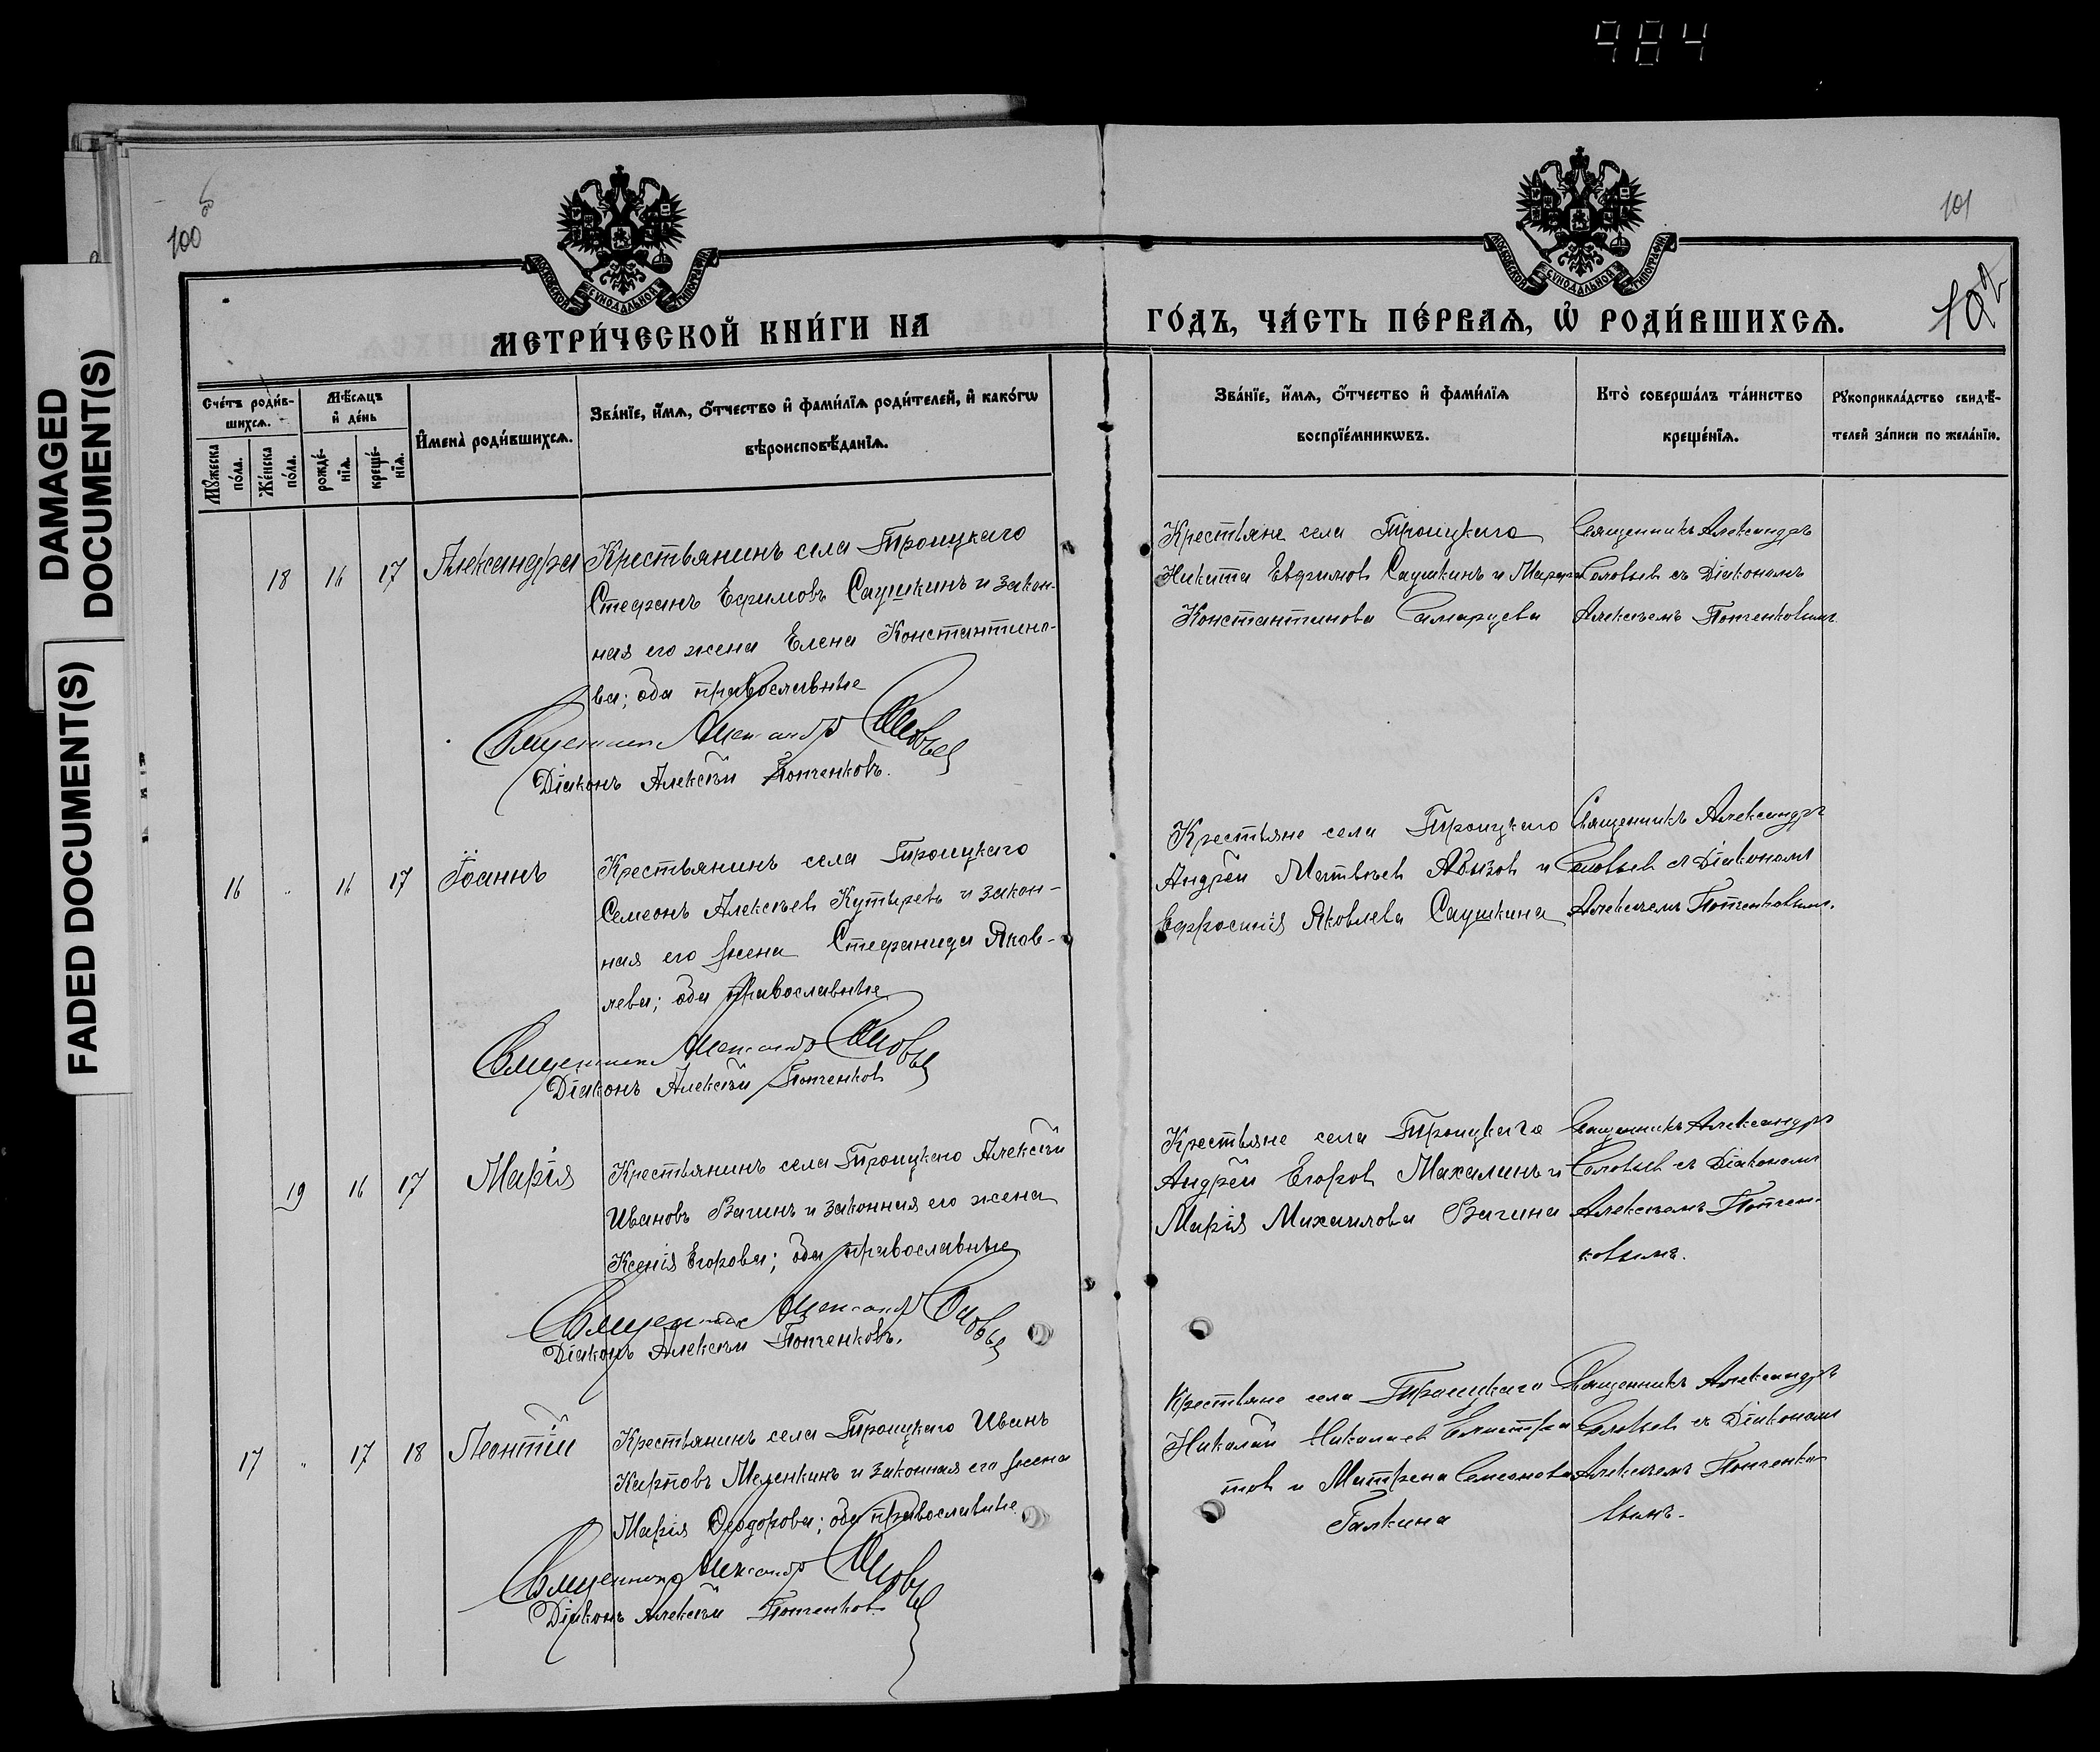 984
DAMAGED
DOCUMENT(S)
FADED DOCUMENT(S)
100
101
МОСКОВСКОЙ СѴНОДАЛЬНОЙ ТИПОГРАФІИ
МОСКОВСКОЙ СѴНОДАЛЬНОЙ ТИПОГРАФІИ
МЕТРИ́ЧЕСКОЙ КНИ́ГИ НА
ГО́ДЪ, ЧА́СТЬ ПЕ́РВАѦ, Ѡ҆ РОДИ́ВШИХСѦ.
Сче́тъ роди́в-
шихсѧ.
Мѣ́сѧцъ
и҆ де́нь
Мꙋ́жеска
по́ла.
Же́нска
по́ла.
рожде́-
нїѧ.
креще́-
нїѧ.
И҆мена̀ роди́вшихсѧ.
Зва́нїе, и҆́мѧ, ѻ҆́тчество и҆ фами́лїѧ роди́телей, и҆ како́гѡ
вѣроисповѣ́данїѧ.
Зва́нїе, и҆́мѧ, ѻ҆́тчество и҆ фами́лїѧ
воспрїе́мникѡвъ.
Кто̀ соверша́лъ та́инство
креще́нїѧ.
Рꙋкоприкла́дство свидѣ́-
телей за́писи по жела́нїю.
18 16 17 Александра
Крестьянинъ села Троицкаго
Стефанъ Ефимовъ Саушкинъ и закон-
ная его жена Елена Константино-
ва; оба православные
Священникъ Александръ Соловьев
Діаконъ Алексѣй Потченковъ.
Крестьяне села Троицкаго
Никита Евфимов Саушкинъ и Марфа
Константинова Самарцева
Священникъ Александръ
Соловьев съ Діакономъ
Алексѣемъ Потченковымъ
16 „ 16 17 Іоаннъ
Крестьянинъ села Троицкаго
Семеонъ Алексѣевъ Кутыревъ и закон-
ная его жена Стефанида Яков-
лева; оба православные
Священникъ Александръ Соловьев
Діаконъ Алексѣй Потченков
Крестьяне села Троицкаго
Андрей Матвѣев Абызов и
Евфросинія Яковлева Саушкина
Священникъ Александръ
Соловьев съ Діакономъ
Алексѣемъ Потченковымъ.
19 16 17 Марія
Крестьянинъ села Троицкаго Алексѣй
Ивановъ Вагинъ и законная его жена
Ксенія Егорова; оба православные
Священникъ Александръ Соловьев
Діаконъ Алексѣй Потченковъ.
Крестьяне села Троицкаго
Андрей Егоров Махалинъ и
Марія Михаилова Вагина
Священникъ Александръ
Соловьев съ Діакономъ
Алексѣемъ Потчен-
ковымъ.
17 „ 17 18 Леонтій
Крестьянинъ села Троицкаго Иванъ
Карповъ Меленкинъ и законная его жена
Марія Ѳеодорова; оба православные
Священникъ Александръ Соловьев
Діаконъ Алексѣй Потченков
Крестьяне села Троицкаго
Николай Николаев Елистра
тов и Матрена Семеонова
Галкина
Священникъ Александръ
Соловьев съ Діакономъ
Алексѣемъ Потченко
вымъ.